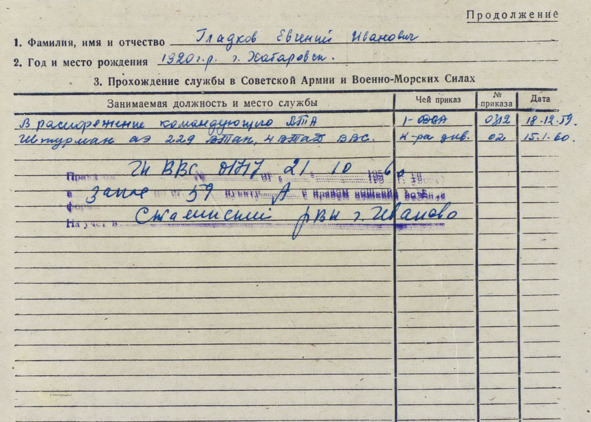 Продолжение
1. Фамилия, имя и отчество Гладков Евгений Иванович
2. Год и место рождения 1920 г.р. г. Хабаровск.
3. Прохождение службы в Советской Армии и Военно-Морских Силах
Занимаемая должность и место службы Чей приказ № приказа Дата
В распоряжение командующего ВТА 1-ВВА 0312 18.12.59.
Штурман аэ 229 ВТАП, ВТАД ВВС. К-ра див. 02 15.1.60.
Приказом ГК ВВС 01717 21 10 196 0
в запас 59 пункту А с правом ношения
На учет в Сталинский РВК г. Иваново